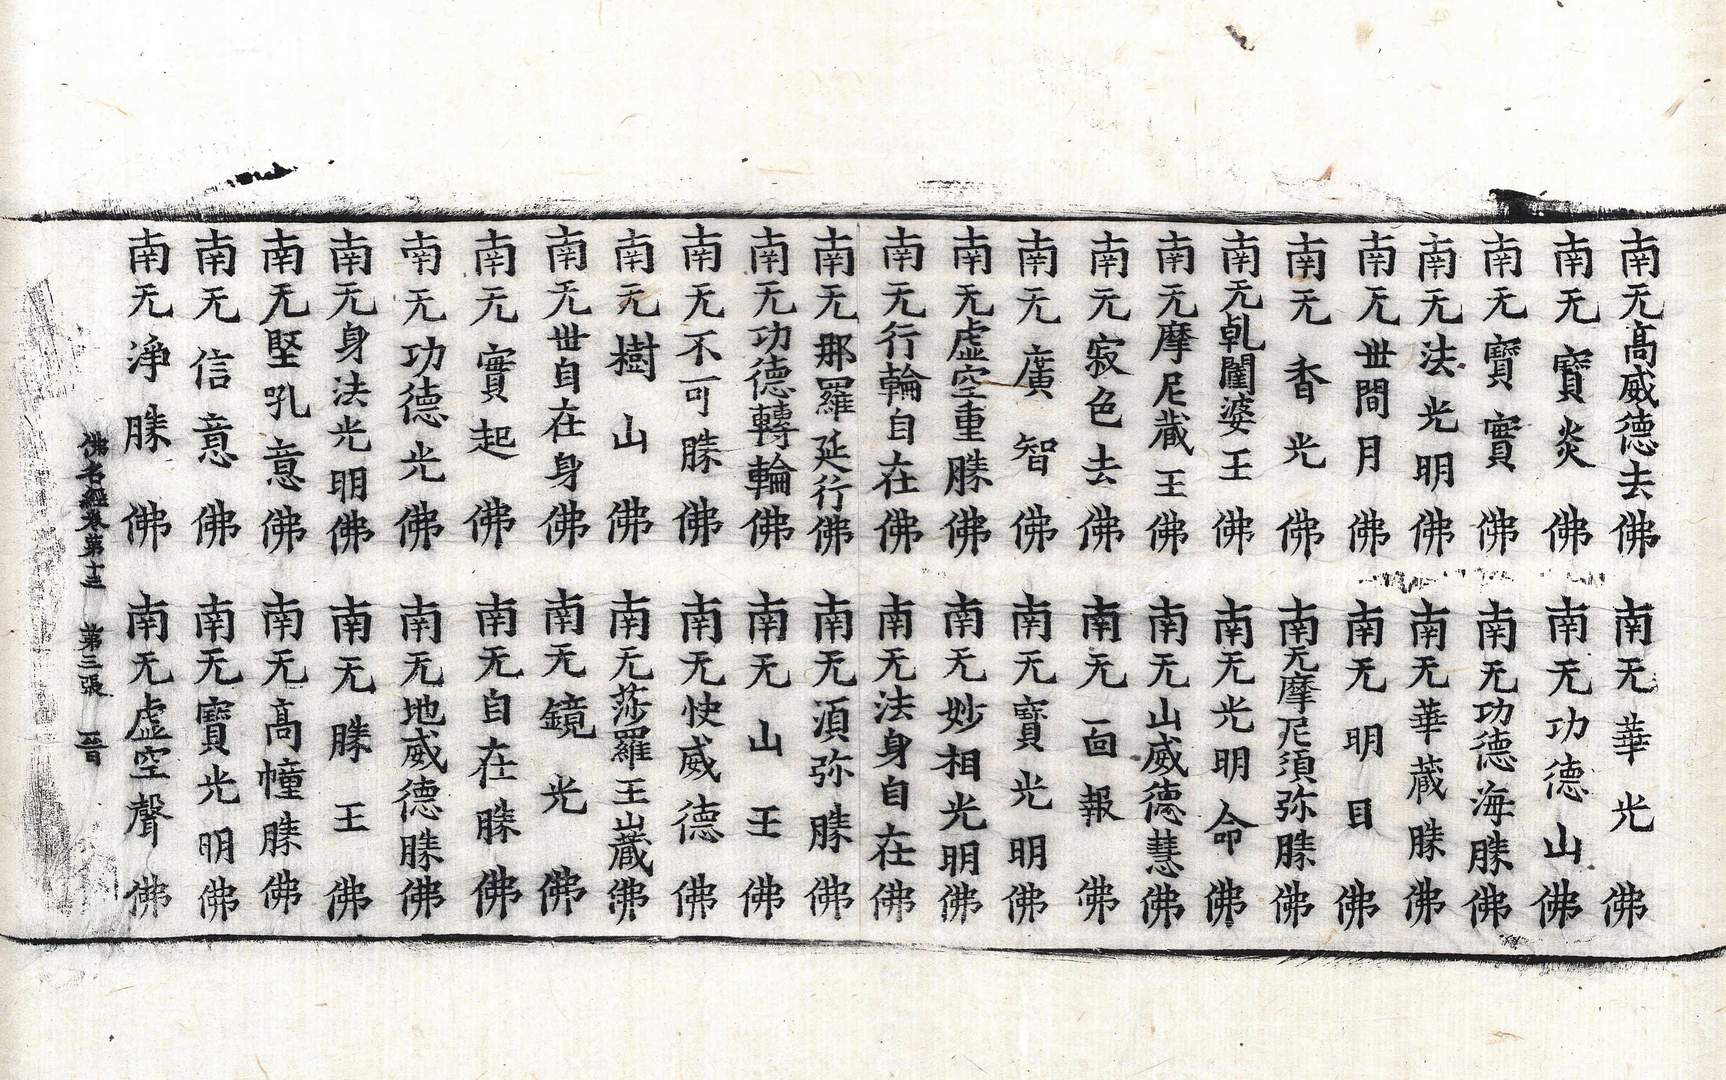 南无高威德去佛　南无華光佛
南无寶炎佛　南无功德山佛
南无寶實佛　南无功德海勝佛
南无法光明佛　南无華蔵勝佛
南无世間月佛　南无明目佛
南无香光佛　南无摩尼湏弥勝佛
南无乹闥婆王佛　南无光明命佛
南无摩尼蔵王佛　南无山威德慧佛
南无寂色去佛　南无一面報佛
南无廣智佛　南无寶光明佛
南无虚空重勝佛　南无妙相光明佛
南无行輪自在佛　南无法身自在佛
南无那羅延行佛　南无湏弥勝佛
南无功德轉輪佛　南无山王佛
南无不可勝佛　南无快威德佛
南无樹山佛　南无莎羅王山蔵佛
南无世自在身佛　南无鏡光佛
南无實起佛　南无自在勝佛
南无功德光佛　南无地威德勝佛
南无身法光明佛　南无勝王佛
南无堅吼意佛　南无高幢勝佛
南无信意佛　南无寶光明佛
南无淨勝佛　南无虚空聲佛
佛名經卷第十三　第三張　晉